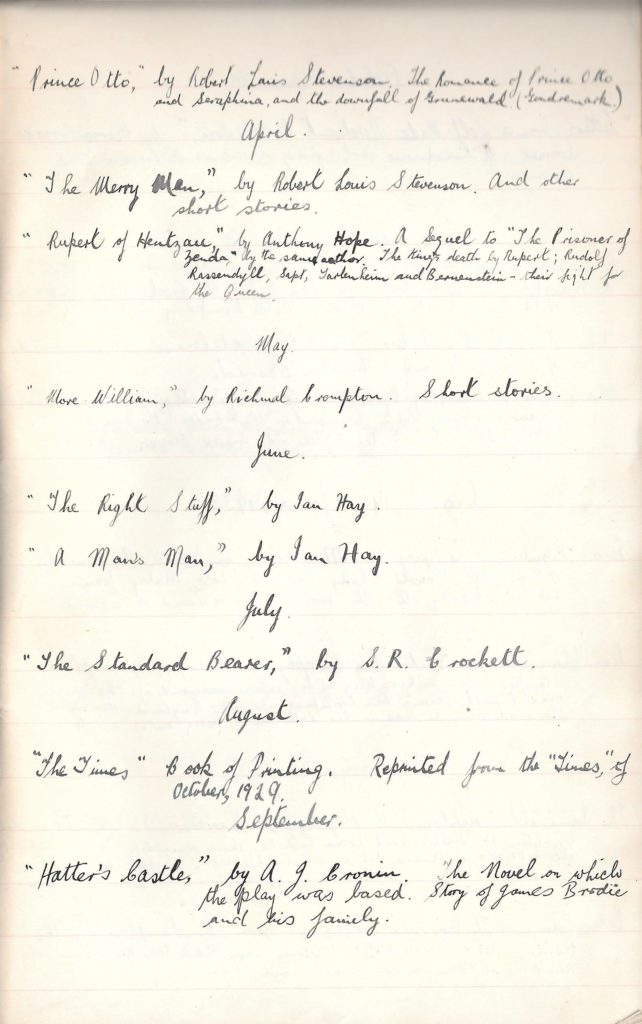 "Prince Otto," by Robert Louis Stevenson. The Romance of Prince Otto
and Seraphina, and the downfall of Grunewald (Gondremark.)
April.
"The Merry Men," by Robert Louis Stevenson. And other
short stories.
"Rupert of Hentzau," by Anthony Hope. A Sequel to "The Prisoner of
Zenda," by the same author. The King's death by Rupert; Rudolf
Rassendyll, Sapt, Tarlenheim and Bernenstein - their fight for
the Queen.
May.
"More William," by Richmal Crompton. Short stories.
June.
"The Right Stuff," by Ian Hay.
"A Man's Man," by Ian Hay.
July.
"The Standard Bearer," by S. R. Crockett.
August.
"The Times" Book of Printing. Reprinted from the "Times," of
October, 1929.
September.
"Hatter's Castle," by A. J. Cronin. The Novel on which
the play was based. Story of James Brodie
and his family.